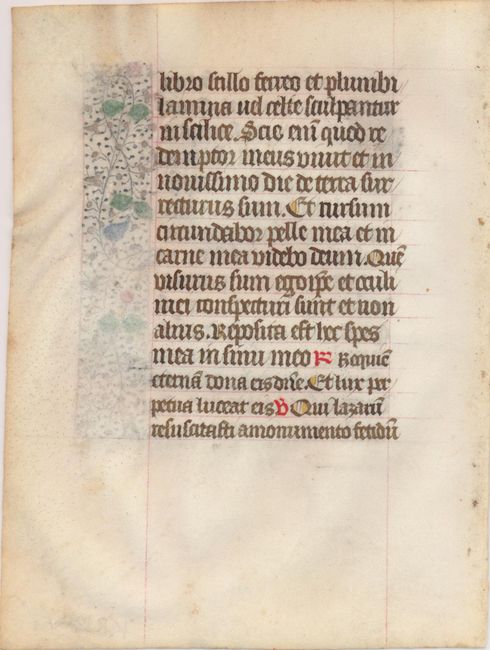 libro stillo ferreo et plumbi
lamina vel celte sculpantur
in scilice. Scio enī quod re
demptor meus viuit et in
nouissimo die de terra sur
recturus sum. Et rursum
circumdabor pelle mea et in
carne mea videbo deum. Quē
visurus sum ego ip̄e et oculi
mei conspecturi sunt et non
alius. Reposita est hec spes
mea in sinu meo R Requiē
eternā dona eis dn̄e. Et lux per
petua luceat eis V Qui lazarū
resuscitasti a monumento fetidū